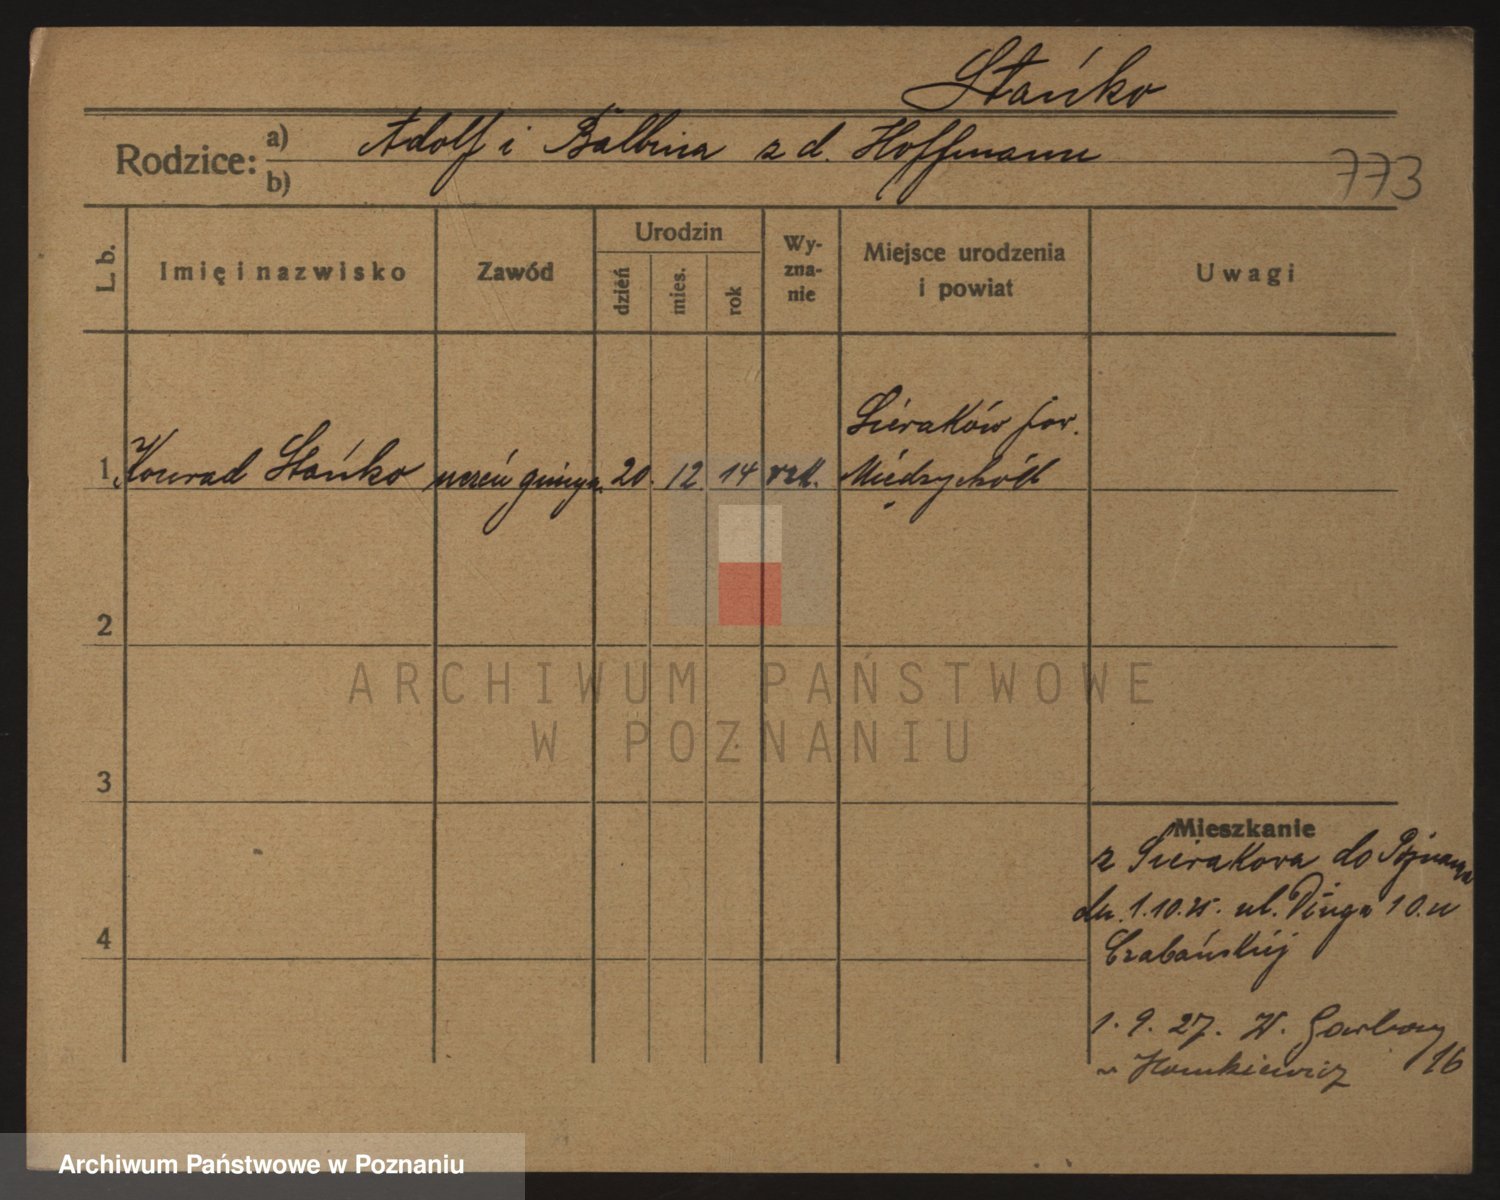 Stańko
Rodzice: a) Adolf i Balbina z d. Hoffmann
b)
773
L. b.
Imię i nazwisko
Zawód
Urodzin
dzień
mies.
rok
Wy-
zna-
nie
Miejsce urodzenia
i powiat
Uwagi
Sieraków pow.
1 Konrad Stańko uczeń gimn. 20. 12. 14 rzk. Międzychód
2
ARCHIWUM PAŃSTWOWE
W POZNANIU
3
Mieszkanie
z Sierakowa do Poznania
dn. 1.10.25. ul. Długa 10. u
4
Czabańskiej
1. 9. 27. W. Garbary 16
u
Archiwum Państwowe w Poznaniu